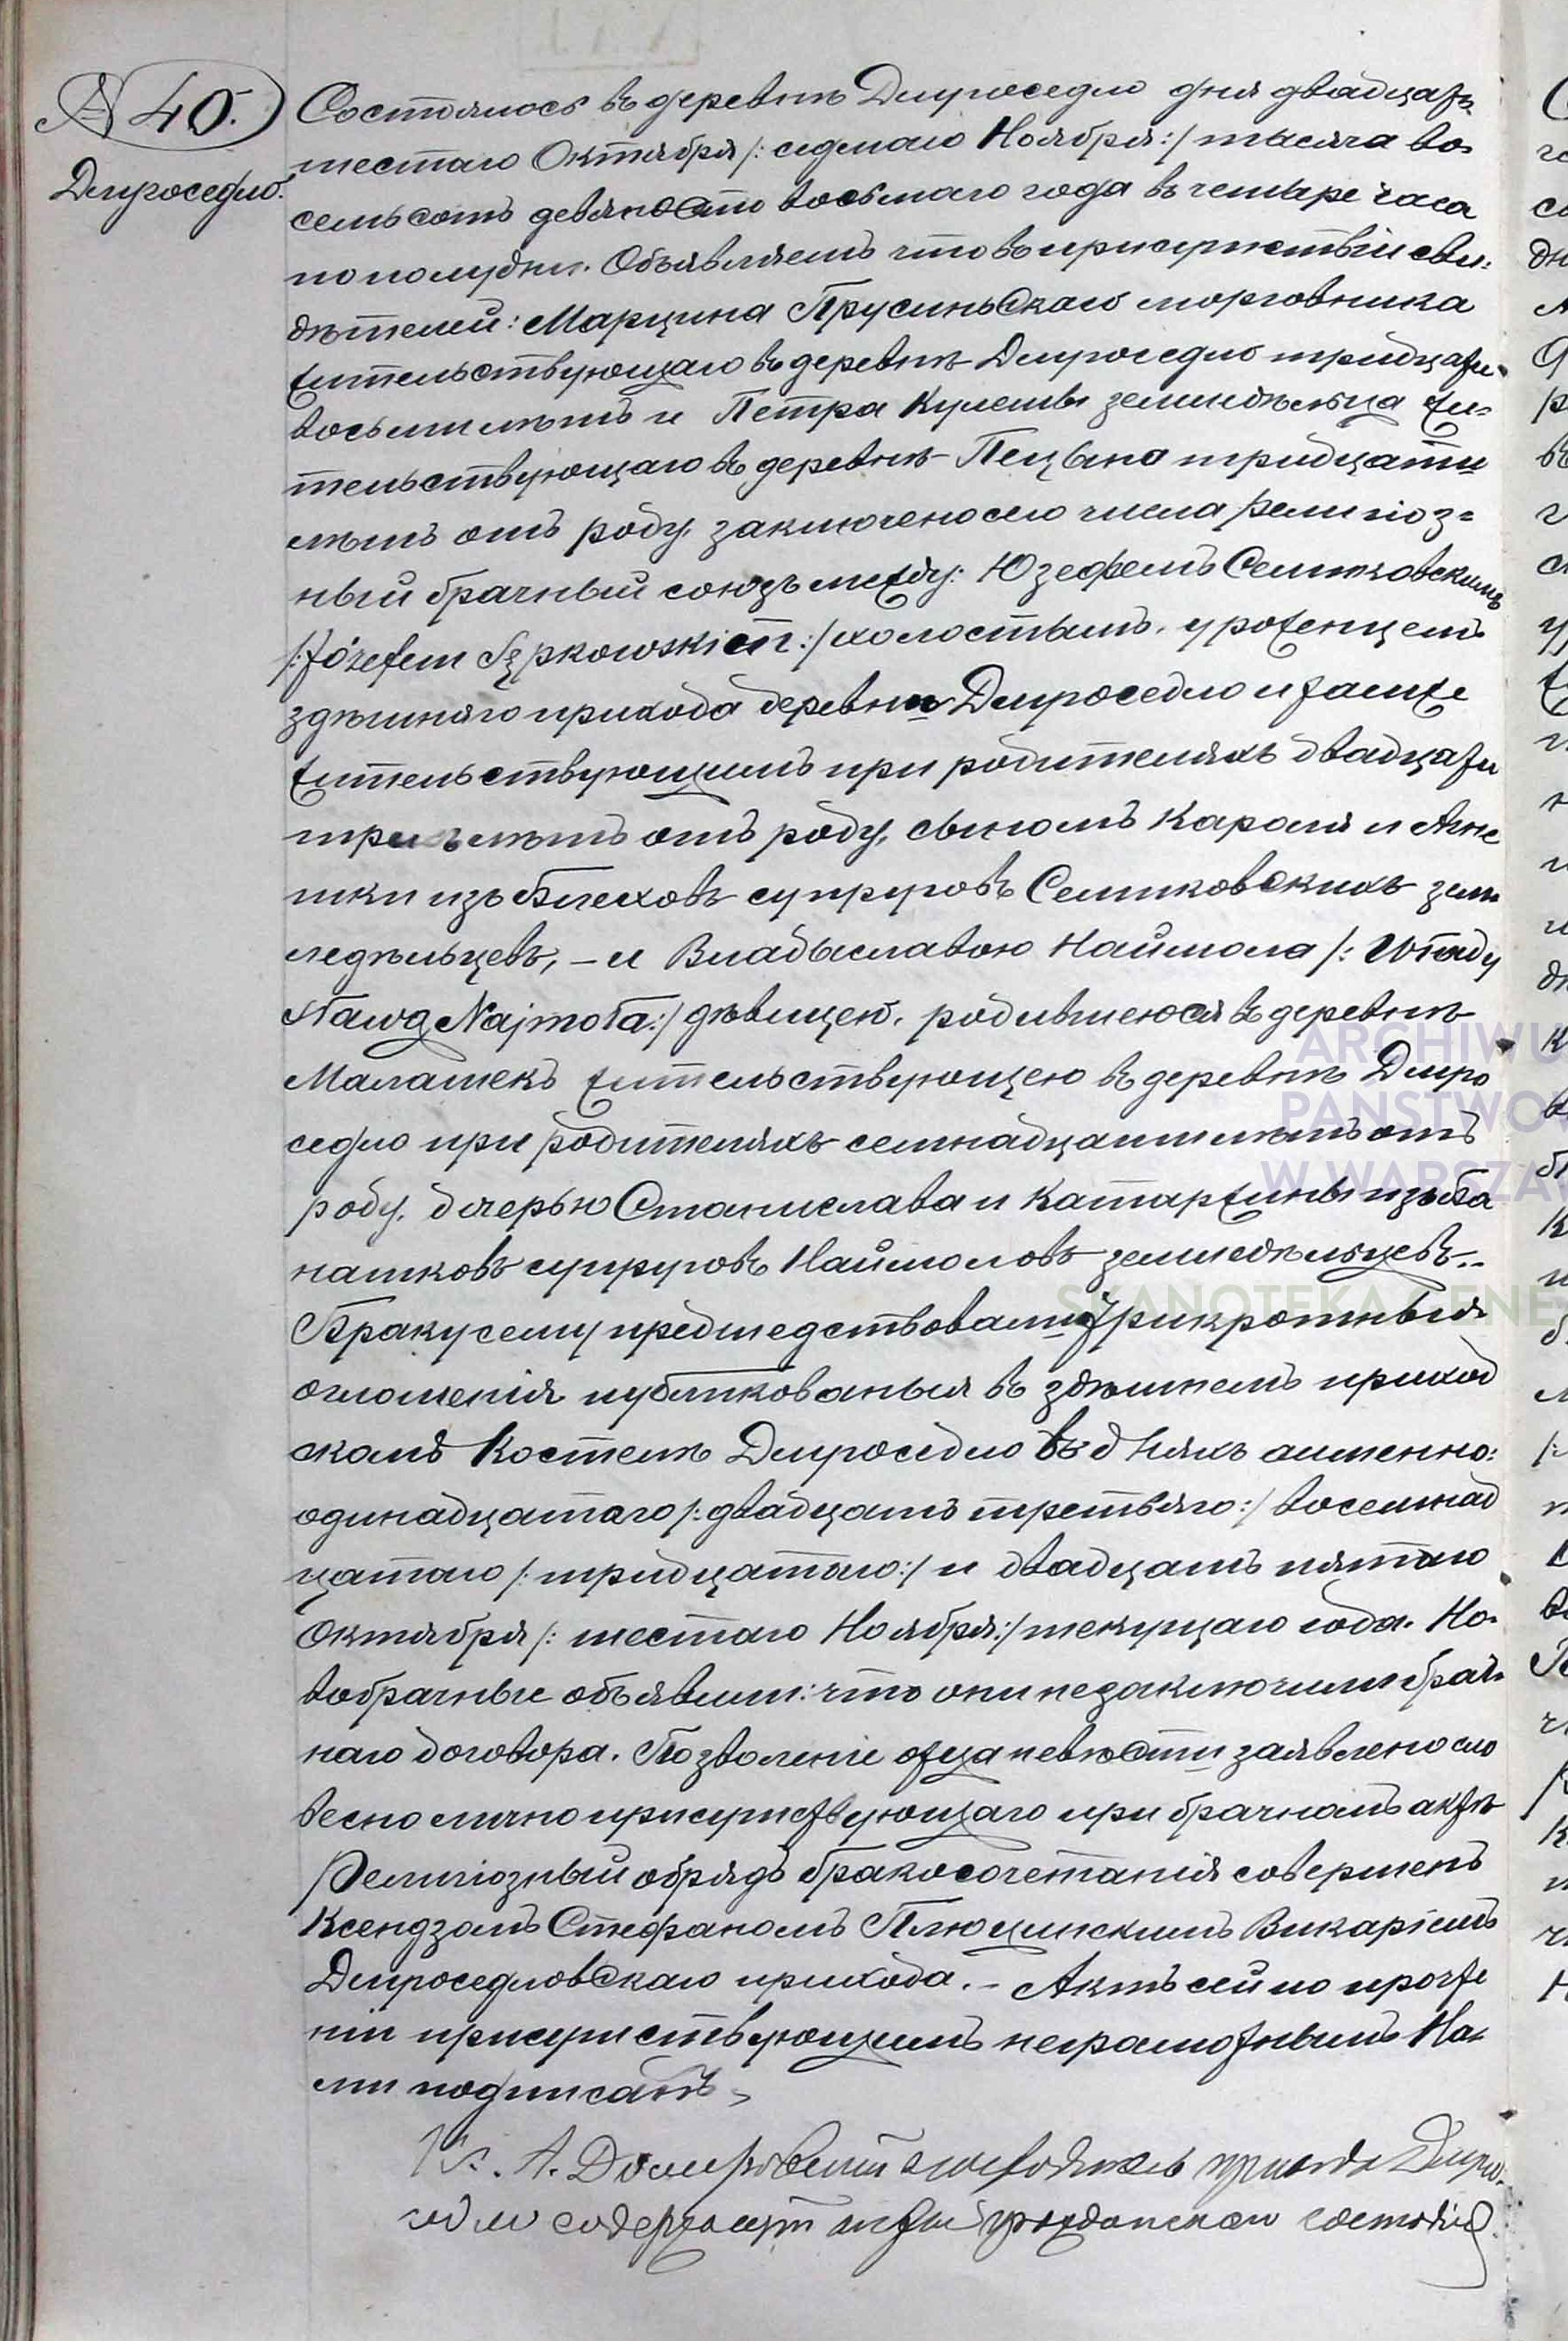 № 40.
Длугоседло.
Состоялось въ деревнѣ Длугоседло дня двадцать
шестаго Октября /: седмаго Ноября :/ тысяча во-
семьсотъ девяносто восьмаго года въ четыре часа
по полудни. Объявляемъ что въ присутствіи сви-
дѣтелей: Марцина Прусиньскаго морговника
жительствующаго въ деревнѣ Длугоседло тридцати-
восьми лѣтъ и Петра Кулеши земледѣльца жи-
тельствующаго въ деревнѣ Пецына тридцати
лѣтъ отъ роду, заключено сего числа религіоз-
ный брачный союзъ между: Юзефемъ Семпковскимъ
/: Józefem Sępkowskiem :/ холостымъ, уроженцемъ
здѣшняго прихода деревни Длугоседло и тамже
жительствующимъ при родителяхъ двадцати
трехъ лѣтъ отъ роду, сыномъ Кароля и Агне
шки изъ Блеховъ супруговъ Семпковскихъ зем
ледѣльцевъ, – и Владыславою Наймола /: Włady
sławą Najmoła :/ дѣвицею, родившеюся въ деревнѣ
Малашекъ жительствующею въ деревнѣ Длуго
седло при родителяхъ семнадцати лѣтъ отъ
роду, дочерью Станислава и Катаржины изъ Ба
нашковъ супруговъ Наймоловъ земледѣльцевъ.–
Браку сему предшедствовали трикротныя
оглошенія публикованыя въ здѣшнемъ приход
скомъ Костелѣ Длугоседло въ дняхъ аименно:
одинадцатаго /: двадцать третьяго :/ восемнад
цатаго /: тридцатаго :/ и двадцать пятаго
Октября /: шестаго Ноября :/ текущаго года. Но-
вобрачные объявили: что они незаключили брач-
наго договора. Позволеніе отца невѣсты заявлено сло
весно лично присутствующаго при брачномъ актѣ
Религіозный обрядъ бракосочетанія совершенъ
Ксендзомъ Стефаномъ Плющинскимъ Викаріемъ
Длугоседловскаго прихода. – Актъ сей по прочте
ніи присутствующимъ неграмотнымъ На-
ми подписанъ
Кс. А. прихода Длуго-
седло содержащій акты гражданскаго состоянія